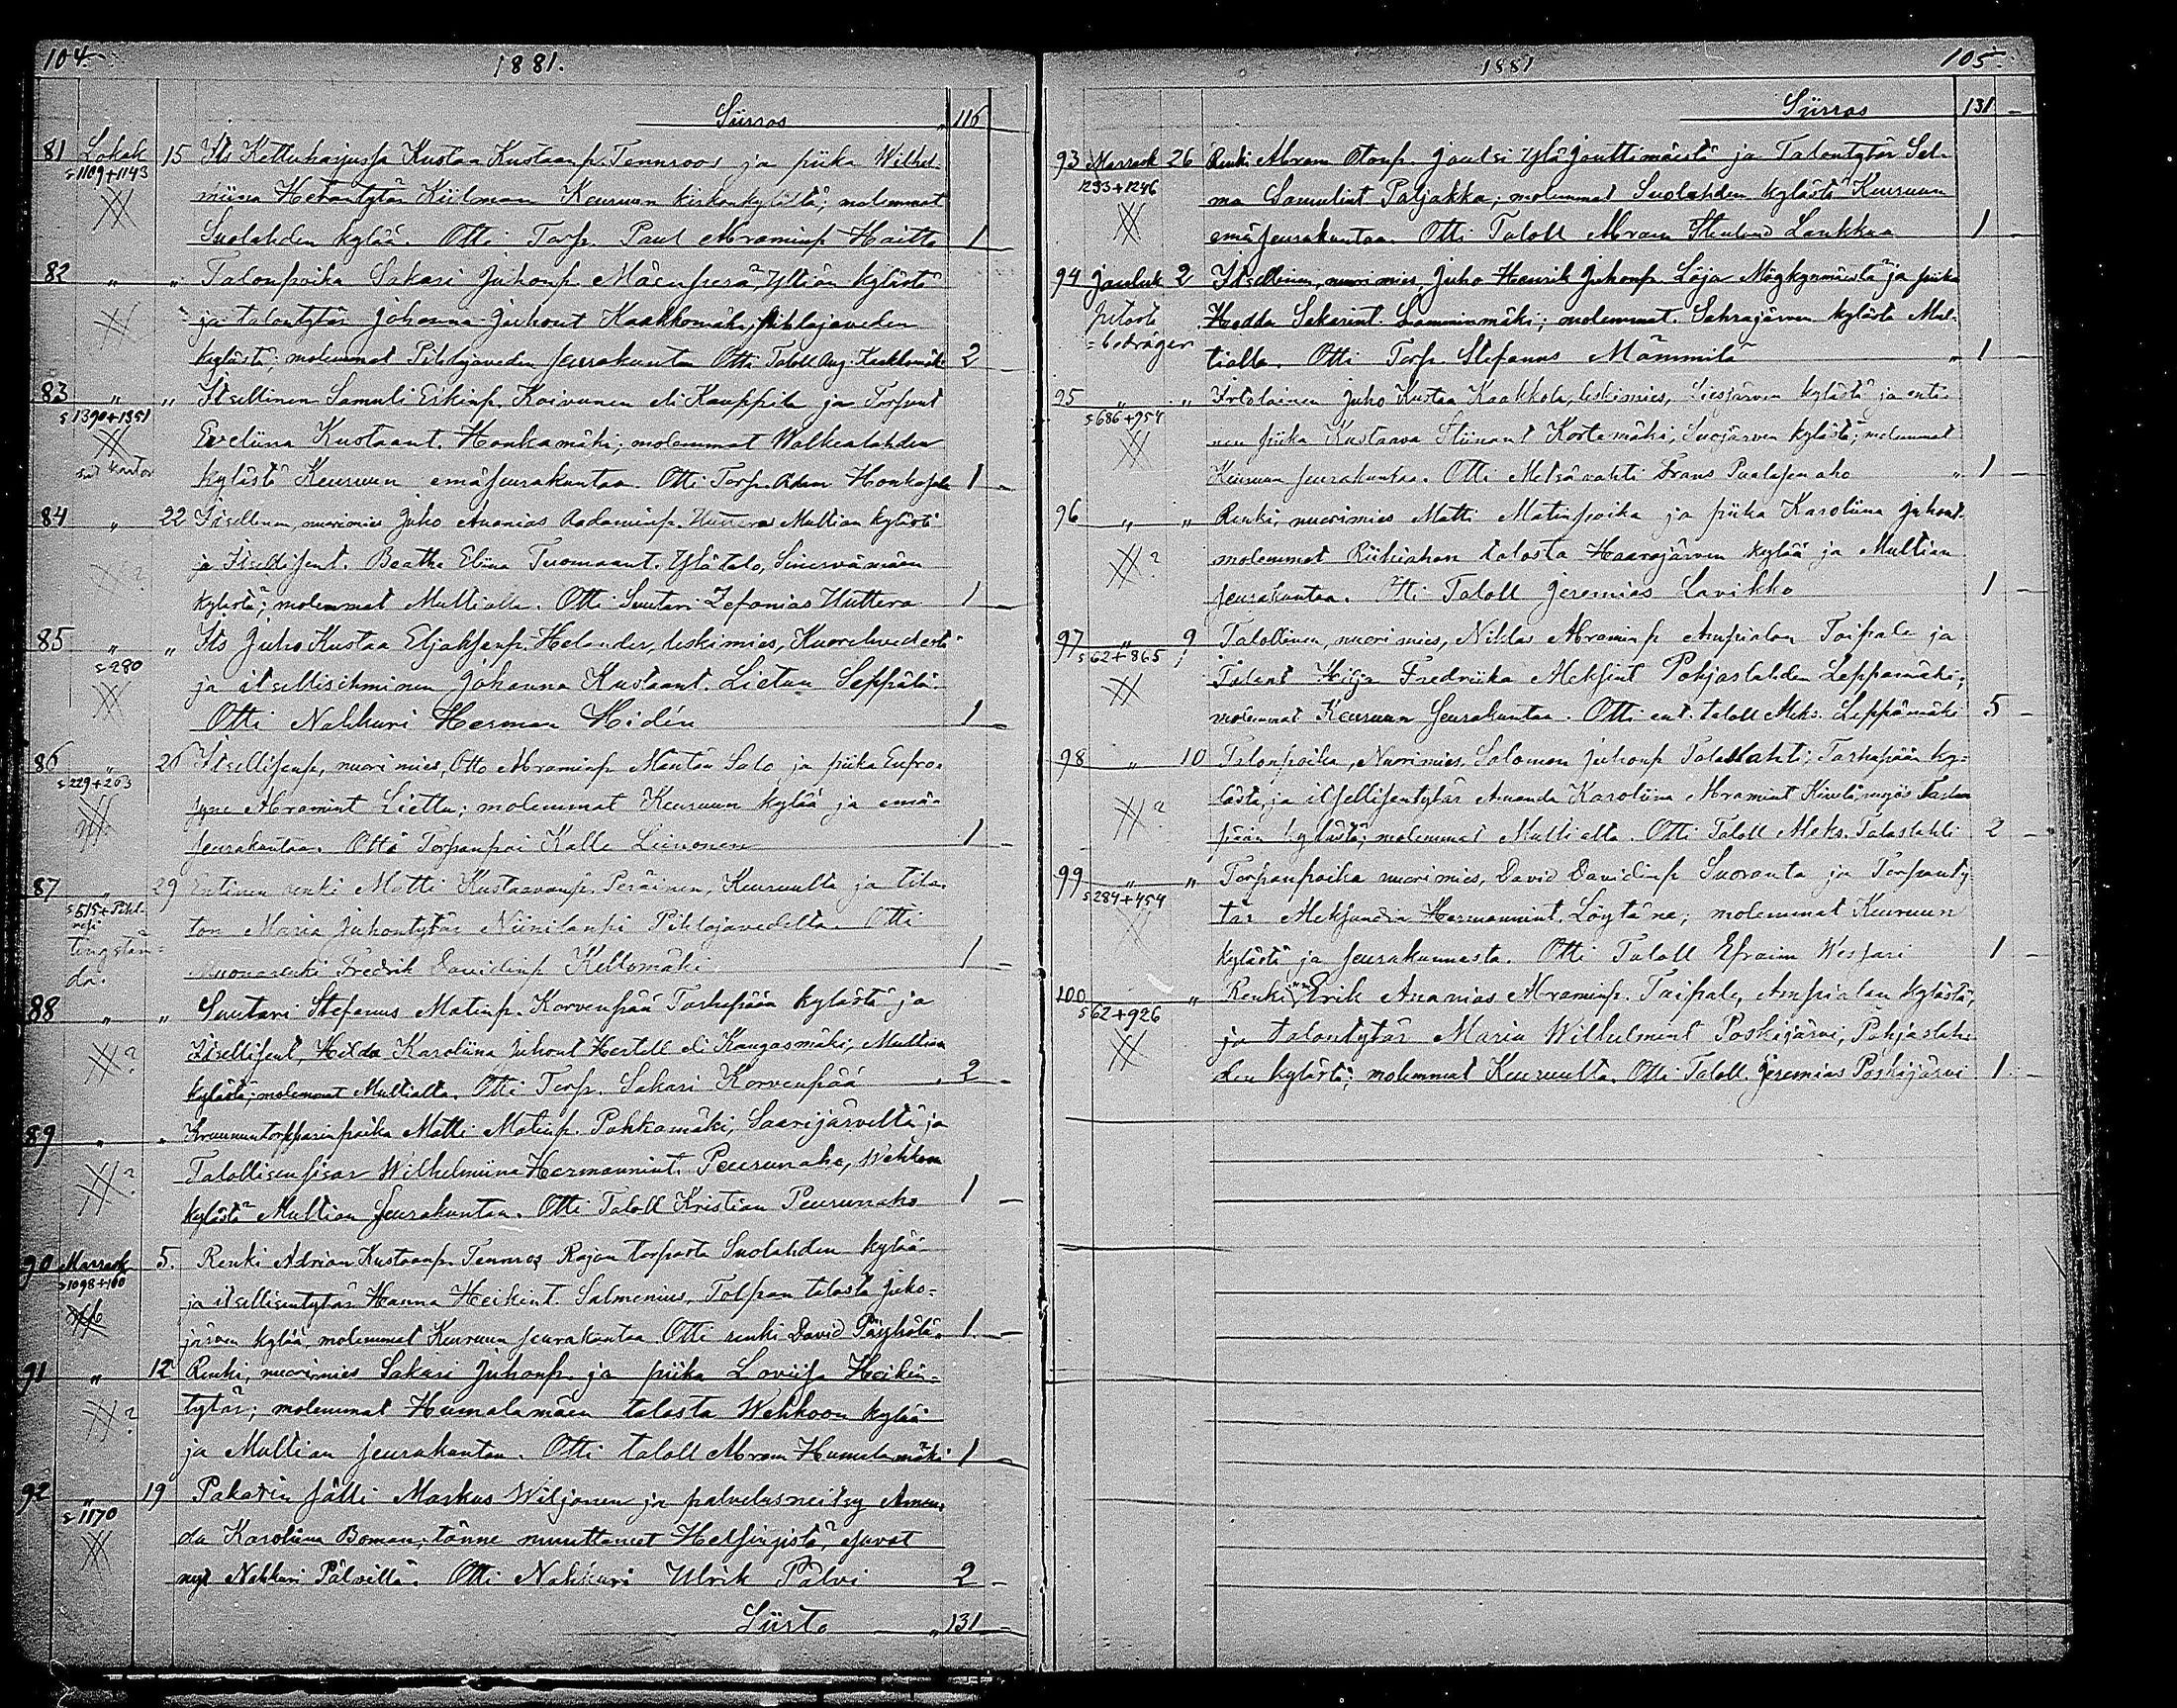 104.
1881.
Siirros " 116
81 Lokak 15 Its Kettuharjussa Kustaa Kustaanp. Tennroos ja piika Wilhel-
s 1109+1143 miina Hetantytär Kiilman Keuruun kirkonkylästä; molemmat
Suolahden kylää. Otti Torp. Paul Abraminp. Haitto 1 -
82 " " Talonpoika Sakari Juhonp. Mäenperä, Yltiän kylästä
ja talontytär Johanna Juhont Kaakkomäki, Pihlajaveden
kylästä; molemmat Pihlajaveden seurakuntaa Otti Taloll Aug. Kaakkomäki 2 -
83 " " Itsellinen Samuli Eskinp. Koivunen eli Kauppila ja Torpant
s 1390+1351 Eveliina Kustaant. Honkamäki; molemmat Walkealahden
kylästä Keuruun emäseurakuntaa. Otti Torp. Adam Honkap 1 -
84 " 22 Itsellinen, nuorimies Juho Ananias Aadaminp. Huttera Multian kylästä
? ja Itsellisent. Beatha Eliina Tuomaant. Ylätalo, Sinervämäen
kylästä; molemmat Multialla. Otti Suutari Zefanias Huttera 1 -
85 " " Its Juho Kustaa Eljaksenp. Helander, leskimies, Kuorehvedestä
s 280 ja itsellisihminen Johanna Kustaant. Lietun Seppälä.
Otti Nahkuri Herman Hidén 1 -
86 " 26 Itsellisenp, nuorimies, Otto Abraminp Mäntän Salo ja piika Eufro-
s 229+263 syne Abramint Liettu; molemmat Keuruun kylää ja emä-
seurakuntaa. Otti Torpanpoi Kalle Leinonen 1 -
87 " 29 Entinen renki Matti Kustaavanp. Peräinen, Keuruulta ja tila-
s 515+Pihl- ton Maria Juhontytär Niinilampi Pihlajavedeltä. Otti
da. muonarenki Fredrik Davidinp Kellomäki 1 -
88 " " Suutari Stefanus Matinp. Korvenpää Tarhapään kylästä ja
? Itsellisent, Hilda Karoliina Juhont Hertell eli Kangasmäki, Multian
kylästä; molemmat Multialta. Otti Torp. Sakari Korvenpää . 2 -
89 " " Kruununtorpparinpoika Matti Matinp. Pahkamäki, Saarijärveltä ja
? Talollisensisar Wilhelmiina Hermannint. Peurunaho, Wehkoon
kylästä Multian Seurakuntaa. Otti Taloll Kristian Peurunaho 1 -
90 Marrask 5. Renki Adrian Kustaanp. Tennros Rajan torpasta Suolahden kylää
s 1098+160 ja itsellisentytär Hanna Heikint. Salmenius, Tolpan talosta Juko-
järven kylää, molemmat Keuruun seurakuntaa Otti renki David Pöyhölä. 1. -
91 " 12 Renki, nuorimies Sakari Juhonp. ja piika Loviisa Heikin-
? tytär; molemmat Humalamäen talosta Wehkoon kylää
ja Multian seurakuntaa. Otti taloll Abram Humalamäki 1 -
92 " 19 Pakarin sälli Markus Wiljanen ja palvelusneitsy Aman-
s 1170 da Karoliina Boman; tänne muuttaneet Helsingistä, asuvat
nyt Nahkuri Pälvillä. Otti Nahkuri Ulrik Pälvi 2 -
Siirto " 131 -
1881
105.
Siirros 131 -
93 Marrask 26 Renki Abram Otonp. Jontsi Ylä Jouttimäestä ja Talontytär Sel-
1233+1246 ma Samulint Paljakka; molemmat Suolahden kylästä Keuruun
emäseurakuntaa. Otti Taloll Abram Stenlund Laukkaa 1 -
94 Jouluk 2 Itsellinen, nuorimies, Juho Henrik Juhonp. Löja Mögkynmäestä ja piika
petosta Hedda Sakarint. Lamminmäki; molemmat Sahrajärven kylästä Mul-
=bedräger tialla. Otti Torp. Stefanus Mämmilä " 1 -
95 " " Irtolainen Juho Kustaa Kaakkola, leskimies, Liesjärven kylästä ja enti-
s 686+954 nen piika Kustaava Stiinant Kortemäki, Suojärven kylästä; molemmat
Keuruun seurakuntaa. Otti Metsävahti Frans Puolasenaho " 1 -
96 " " Renki, nuorimies Matti Matinpoika ja piika Karoliina Juhont.
? molemmat Riihiahon talosta Haarajärven kylää ja Multian
seurakuntaa. Otti Taloll Jeremias Lavikko 1 -
97 " 9 Talollinen, nuorimies, Niklas Abraminp Ampialan Taipale ja
s 62+865 Talont Fredriika Aleksint Pohjaslahden Leppämäki;
molemmat Keuruun Seurakuntaa. Otti ent. taloll Aleks. Leppämäki 5 -
98 " 10 Talonpoika, Nuorimies, Salomon Juhonp Talaslahti, Tarhapään ky-
? lästä, ja itsellisentytär Amanda Karoliina Abramint Kivelä, myös Tarha-
pään kylästä; molemmat Multialta. Otti Taloll Aleks. Talaslahti 2 -
99 " " Torpanpoika nuorimies, David Davidinp Suoranta ja Torpanty-
s 284+454 tär Aleksandra Hermannint. Löytäne; molemmat Keuruun
kylästä ja seurakunnasta. Otti Taloll Efraim Wesjari 1 -
100 " Renki Erik Ananias Abraminp. Taipale, Ampialan kylästä,
s 62+926 ja talontytär Maria Wilhelmint Poskijärvi, Pohjaslah-
den kylästä; molemmat Keuruulta. Otti Taloll. Jeremias Poskijärvi 1. -